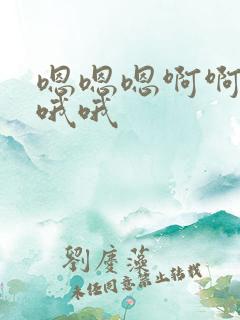 嗯嗯嗯啊啊
哦哦
劉慶藻
未经同意禁止转载